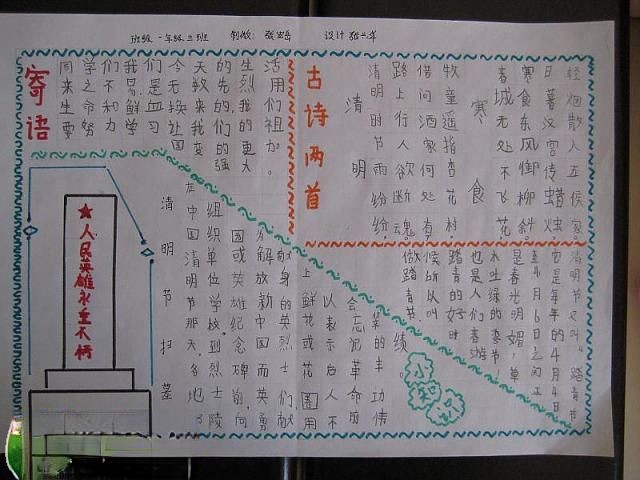 班级 一年级三班 制做: 设计
寄语
同学们我们今天的生活
来之不易是无数先烈用
生令和鲜血换来的我们
要努力学习
国变的更强大。
古诗两首
清明
清明时节雨纷纷,
路上行人欲断魂。
借问酒家何处有
牧童遥指杏花村。
寒食
春城无处不飞花
寒食东风御柳斜。
日暮汉宫传蜡烛
轻烟散入五侯家。
清明节又叫。踏青节
它是每年的4月4日
至4月6日之间正
是春光明媚,草
木吐绿的季节!
也是人们春游
踏青的好时
候所以叫
做踏青节。
清明节扫墓
在中国清明节那天,各地
组织单位学校到烈士陵
园或英雄纪念碑前,向
为解放新中国而英勇
献身的英烈士们献
上鲜花或花圈用
以表示后人不
会忘记革命前
辈的丰功情
绩。
人民英雄永垂不朽